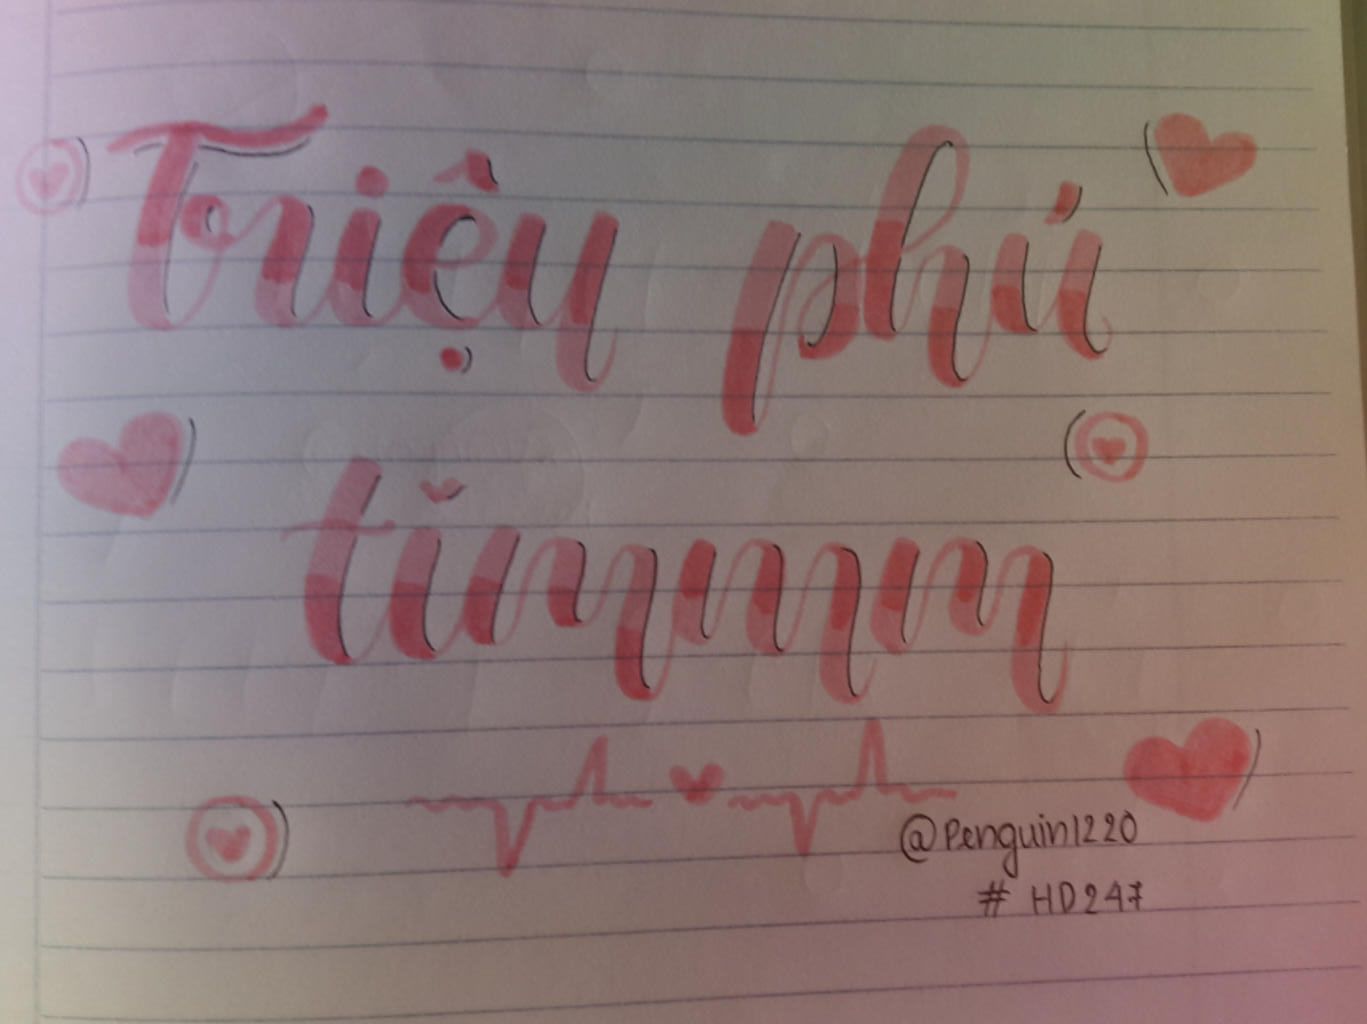 Triệu phú
timmm
@Penguin1220
# HD247